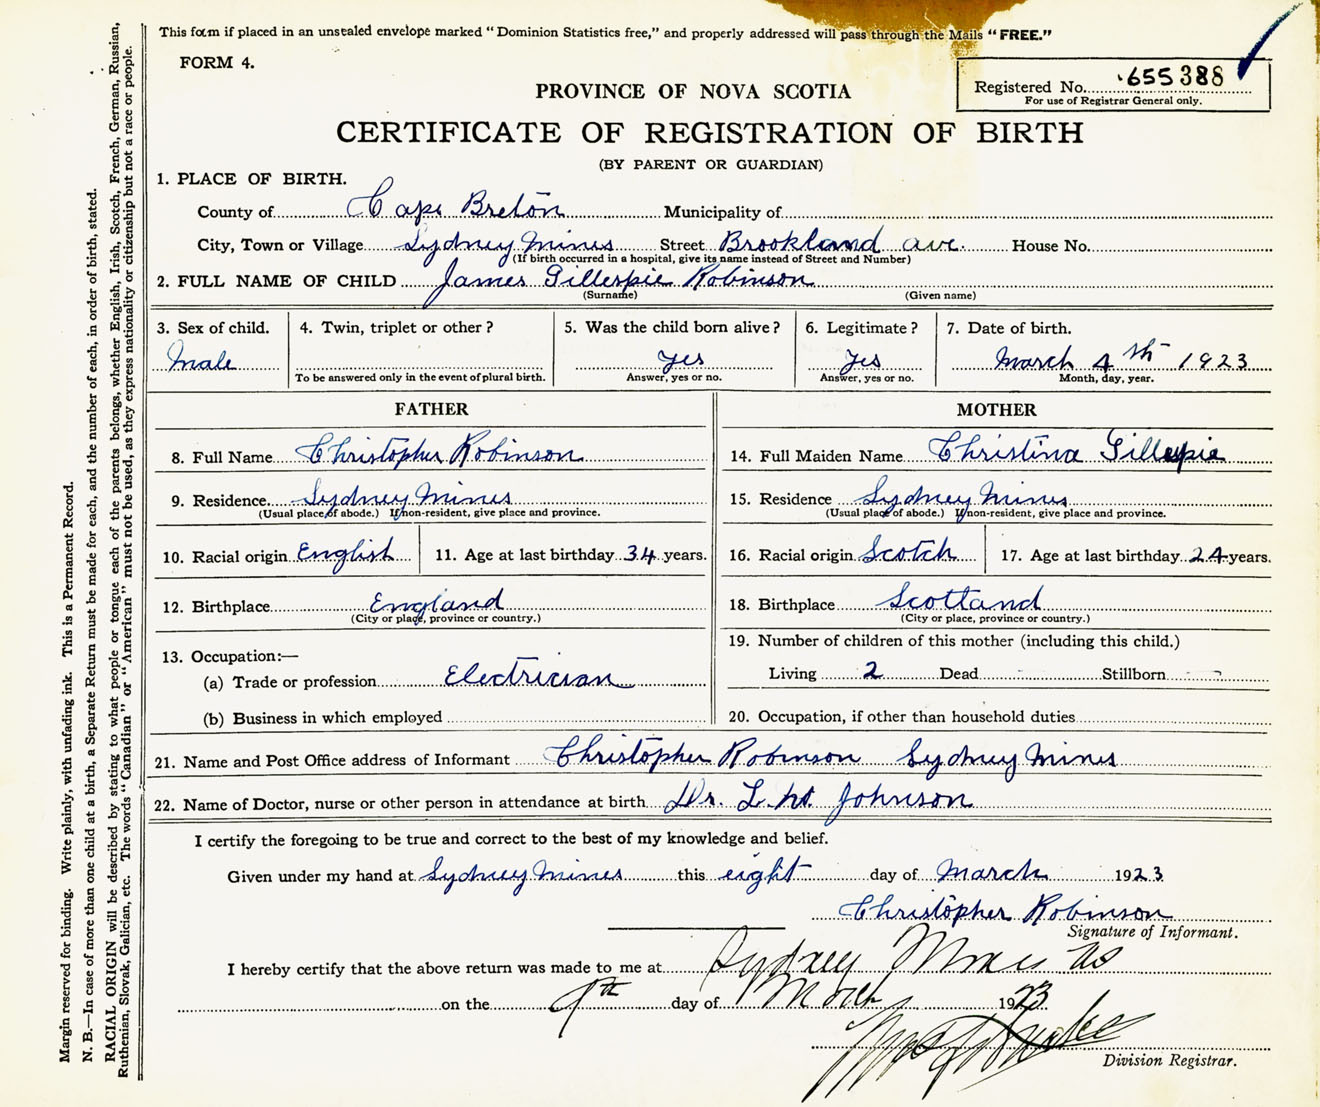 This form if placed in an unsealed envelope marked "Dominion Statistics free," and properly addressed will pass through the Mails "FREE."
FORM 4.
Registered No. 655388
For use of Registrar General only.
PROVINCE OF NOVA SCOTIA
CERTIFICATE OF REGISTRATION OF BIRTH
(BY PARENT OR GUARDIAN)
1. PLACE OF BIRTH.
County of Cape Breton Municipality of
City, Town or Village Sydney Mines Street Brookland ave. House No.
(If birth occurred in a hospital, give its name instead of Street and Number)
2. FULL NAME OF CHILD James Gillespie Robinson
(Surname) (Given name)
3. Sex of child. 4. Twin, triplet or other? 5. Was the child born alive? 6. Legitimate? 7. Date of birth.
Male yes Yes March 4th 1923
To be answered only in the event of plural birth. Answer, yes or no. Answer, yes or no. Month, day, year.
FATHER MOTHER
8. Full Name Christopher Robinson 14. Full Maiden Name Christina Gillespie
9. Residence Sydney Mines 15. Residence Sydney Mines
(Usual place of abode.) If non-resident, give place and province. (Usual place of abode.) If non-resident, give place and province.
10. Racial origin English 11. Age at last birthday 34 years. 16. Racial origin Scotch 17. Age at last birthday 24 years.
12. Birthplace England 18. Birthplace Scotland
(City or place, province or country.) (City or place, province or country.)
13. Occupation:— 19. Number of children of this mother (including this child.)
(a) Trade or profession Electrician Living 2 Dead - Stillborn -
(b) Business in which employed 20. Occupation, if other than household duties
21. Name and Post Office address of Informant Christopher Robinson Sydney Mines
22. Name of Doctor, nurse or other person in attendance at birth Dr. L. W. Johnson
I certify the foregoing to be true and correct to the best of my knowledge and belief.
Given under my hand at Sydney Mines this eight day of March 1923
Christopher Robinson
Signature of Informant.
I hereby certify that the above return was made to me at Sydney Mines NS
on the 9th day of March 1923
Division Registrar.
Margin reserved for binding. Write plainly, with unfading ink. This is a Permanent Record.
N. B.—In case of more than one child at a birth, a Separate Return must be made for each, and the number of each, in order of birth, stated.
RACIAL ORIGIN will be described by stating to what people or tongue each of the parents belongs, whether English, Irish, Scotch, French, German, Russian,
Ruthenian, Slovak, Galician, etc. The words "Canadian" or "American" must not be used, as they express nationality or citizenship but not a race or people.